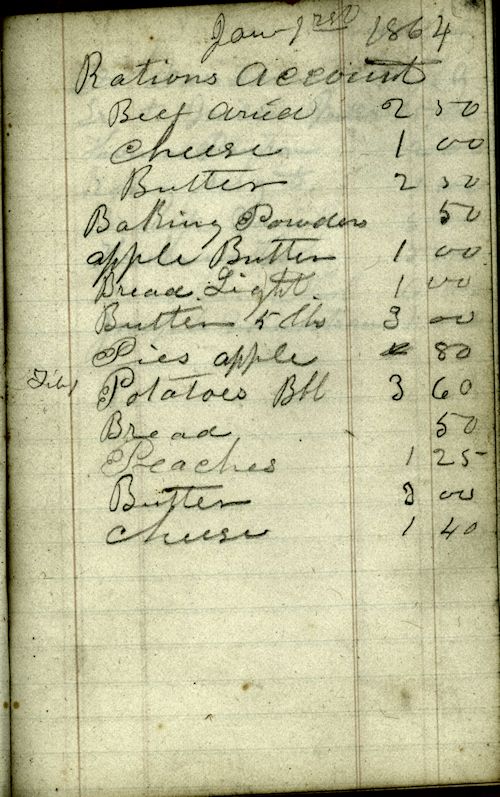 Jany 1rst 1864
Rations Account
Beef dried 2 50
Cheese 1 00
Butter 2 50
Baking Powders 50
apple Butter 1 00
Bread Light 1 00
Butter 5 lbs 3 00
Pies apple 80
Potatoes Bbl 3 60
Bread 50
Peaches 1 25
Butter 3 00
Cheese 1 40